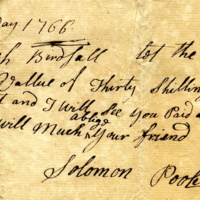 ay 1766
h Birdsall let the
Vallue of Thirty Shilling
t and I will See you Paid a
will Much oblige your friend
Solomon Pool